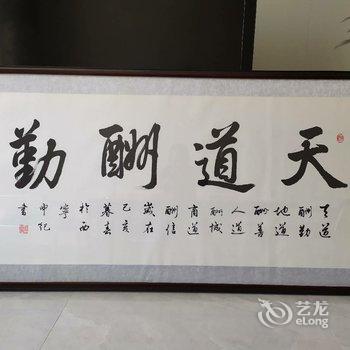 天道酬勤
天道
酬勤
地道
酬善
人道
酬诚
商道
酬信
歲在
己亥
暮春
於西
寧
申纪
書
艺龙
eLong.com